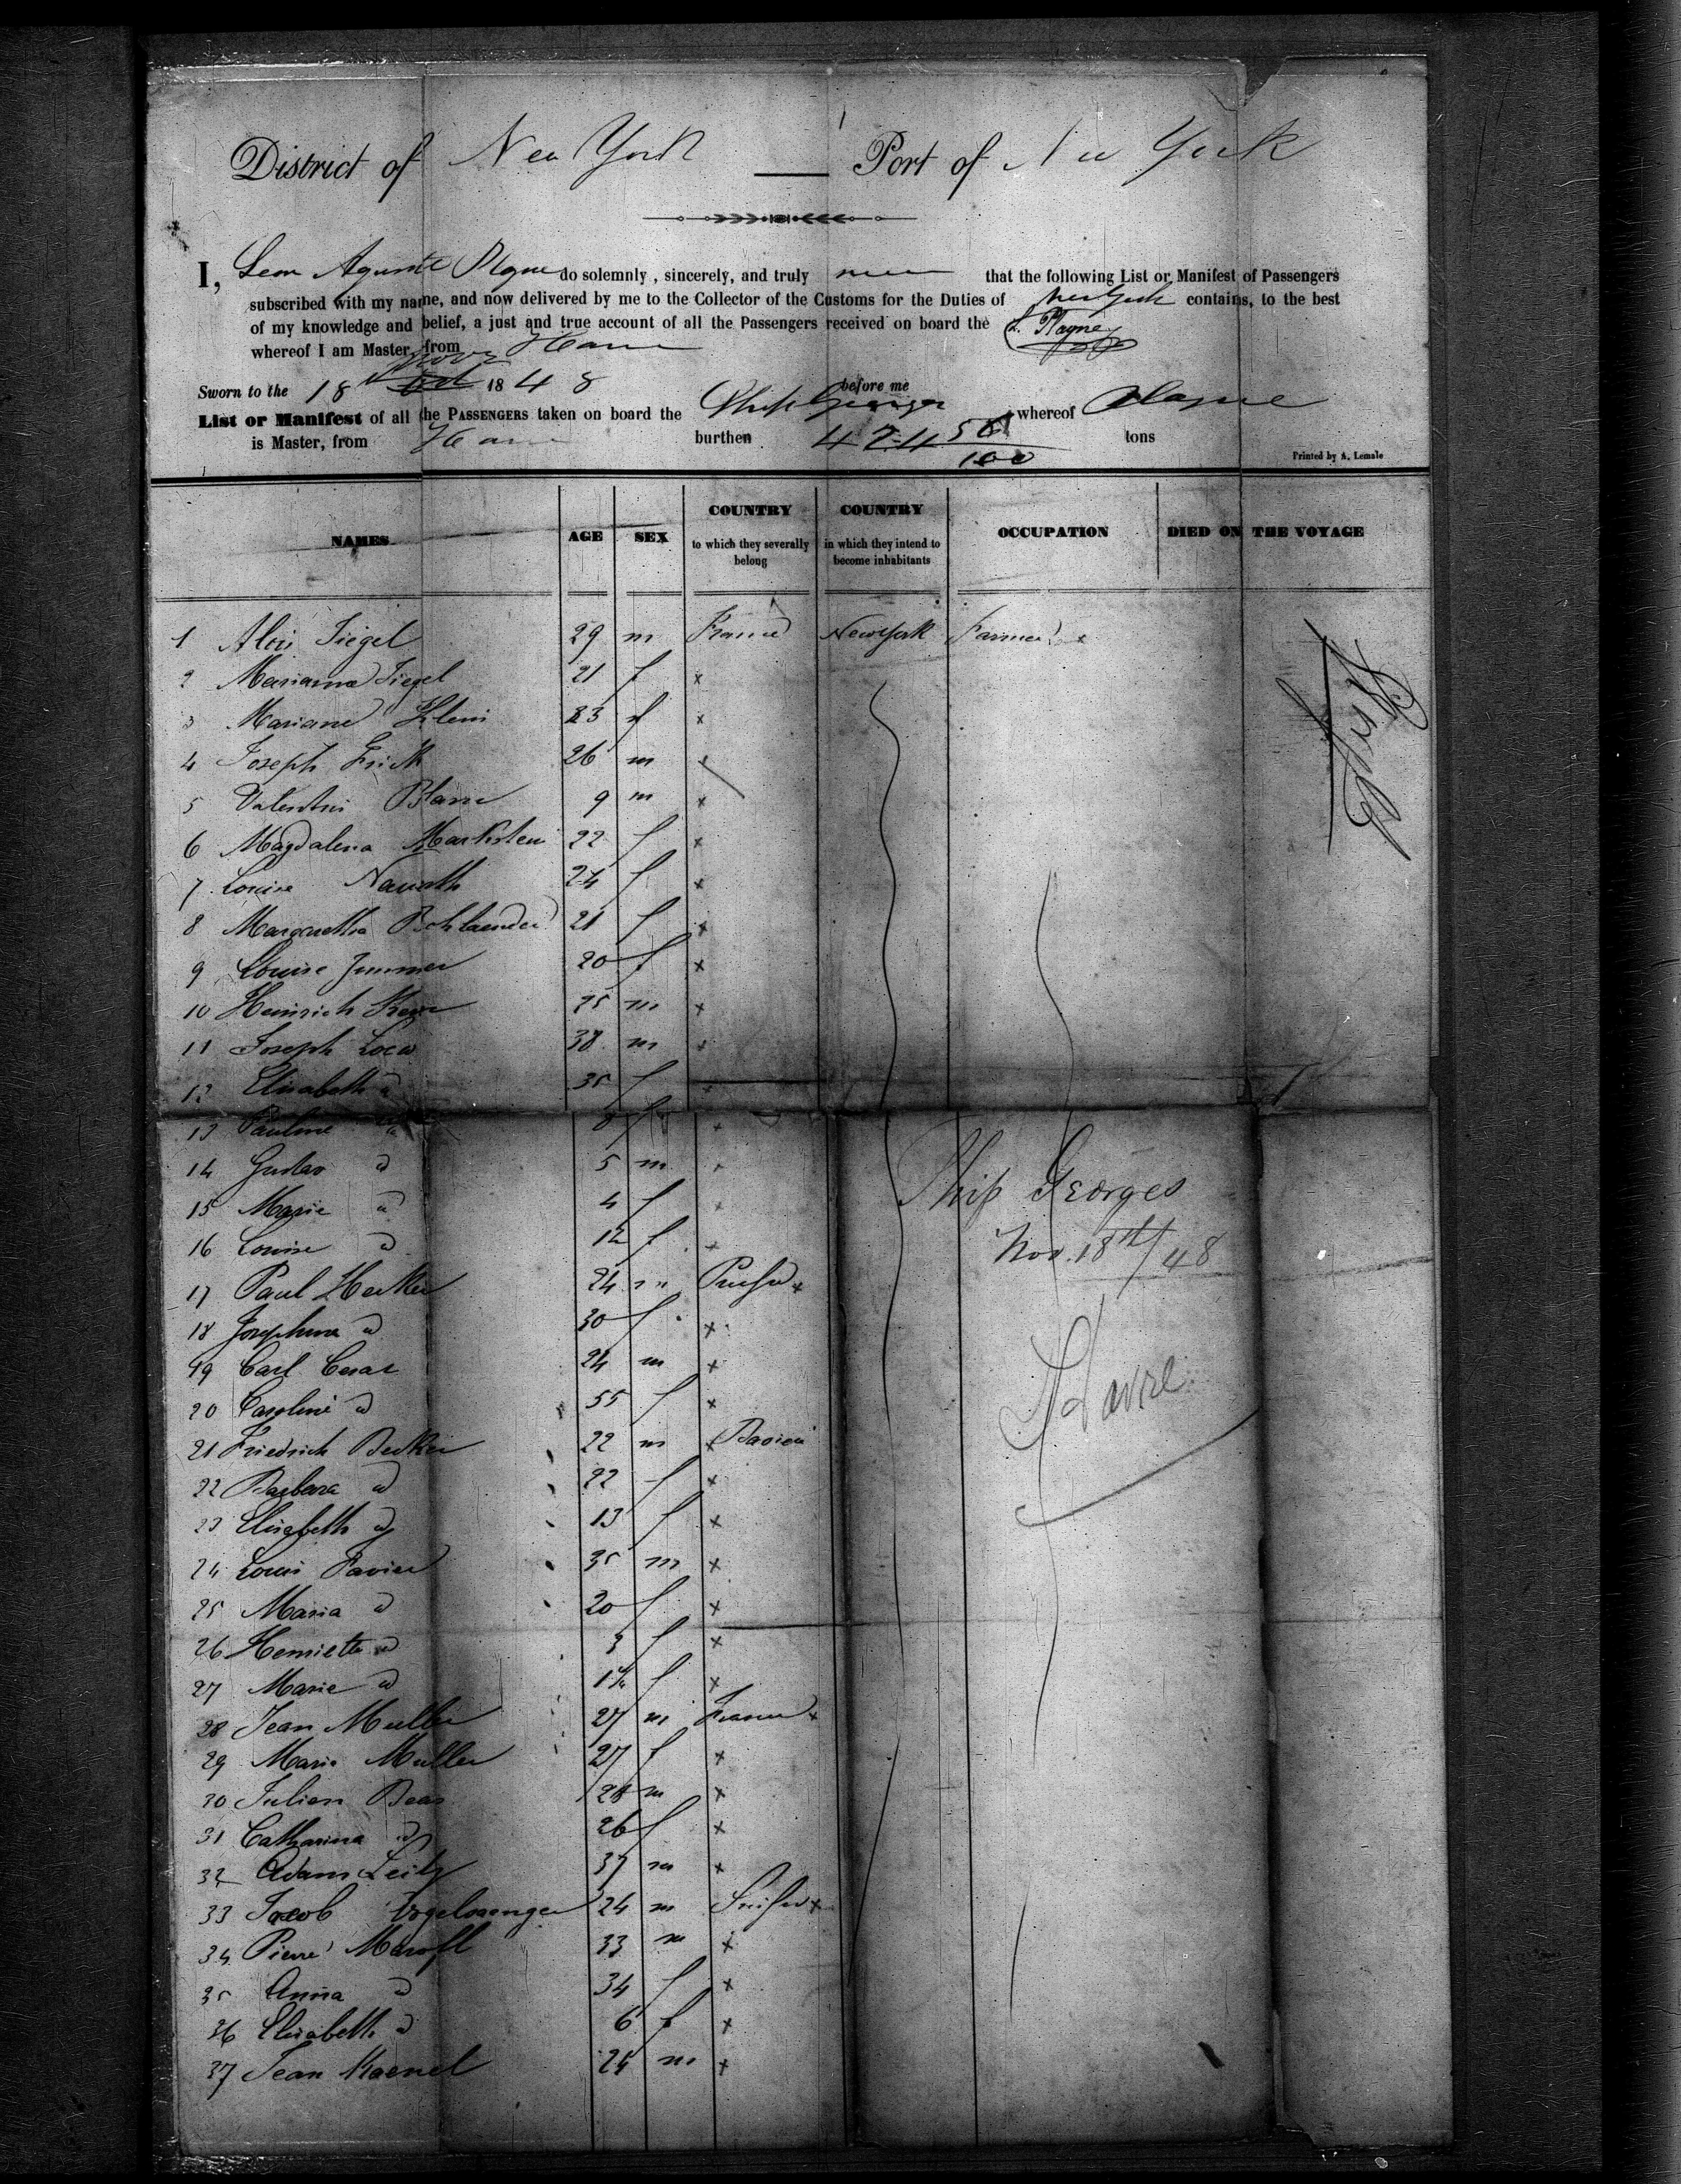 District of New York Port of New York
I, Leon Aguste Plagne do solemnly, sincerely, and truly that the following List or Manifest of Passengers
subscribed with my name, and now delivered by me to the Collector of the Customs for the Duties of New York contains, to the best
of my knowledge and belief, a just and true account of all the Passengers received on board the L. Plagne
whereof I am Master, from Havre
Sworn to the 18th Novr 1848 before me
List or Manifest of all the PASSENGERS taken on board the Ship Georges whereof Plagne
is Master, from Havre burthen 424 tons
Printed by A. Lemale
NAMES AGE SEX COUNTRY to which they severally belong COUNTRY in which they intend to become inhabitants OCCUPATION DIED ON THE VOYAGE
1 Alois Siegel 29 m France New York Farmer
2 Marianne Siegel 21 f x
3 Mariane Klein 23 f x
4 Joseph Frick 26 m x
5 Valentin 9 m x
6 Magdalena Markstein 22 f x
7 Louise 24 f x
8 Margaretha Bohlaender 21 f x
9 Louise Zimmer 20 f x
10 Heinrich 25 m x
11 Joseph Loew 38 m x
12 Elisabeth d 35 f x
13 Pauline d 8 f x
14 Gustav d 5 m x
15 Marie d 4 f x
16 Louise d 12 f x
17 Paul Hecker 24 m x
18 Josephina d 30 f x
19 Carl Cesar 24 m x
20 Caroline d 55 f x
21 Friedrich Becker 22 m x
22 Barbara d 22 f x
23 Elisabeth d 13 f x
24 Louis Favier 35 m x
25 Maria d 20 f x
26 Henriette d 3 f x
27 Marie d f x
28 Jean Muller 27 m France x
29 Marie Muller 27 f x
30 Julien 28 m x
31 Catharina d 26 f x
32 Adam Leity 37 m x
33 Jacob 24 m x
34 Pierre 33 m x
35 Anna d 34 f x
36 Elisabeth d 6 f x
37 Jean Kaenel 24 m x
Ship Georges
Nov. 18th/48
Havre